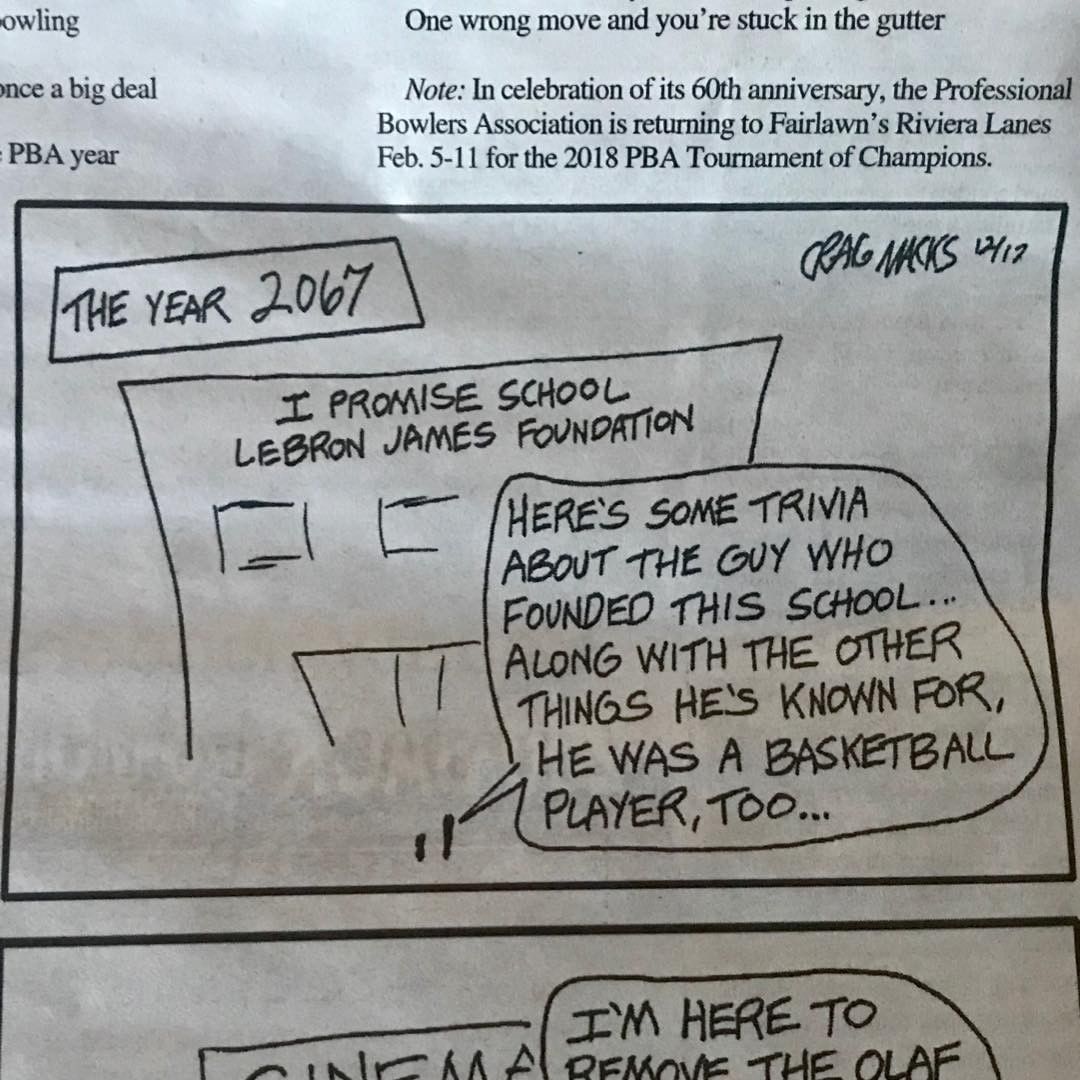 owling
One wrong move and you're stuck in the gutter
once a big deal
Note: In celebration of its 60th anniversary, the Professional
Bowlers Association is returning to Fairlawn's Riviera Lanes
PBA year
Feb. 5-11 for the 2018 PBA Tournament of Champions.
CRAG MACKS 12/17
THE YEAR 2067
I PROMISE SCHOOL
LEBRON JAMES FOUNDATION
HERE'S SOME TRIVIA
ABOUT THE GUY WHO
FOUNDED THIS SCHOOL...
ALONG WITH THE OTHER
THINGS HE'S KNOWN FOR,
HE WAS A BASKETBALL
PLAYER, TOO...
I'M HERE TO
CINEMA
REMOVE THE OLAF